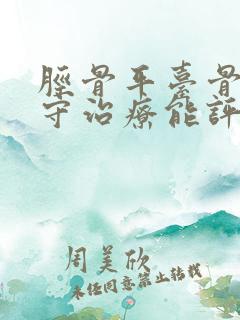 脛骨平臺骨
守治療能評
周美欣
未经同意禁止转载